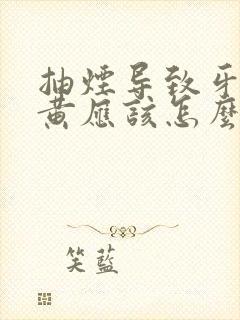 抽煙导致牙
黄应该怎麼
笑藍